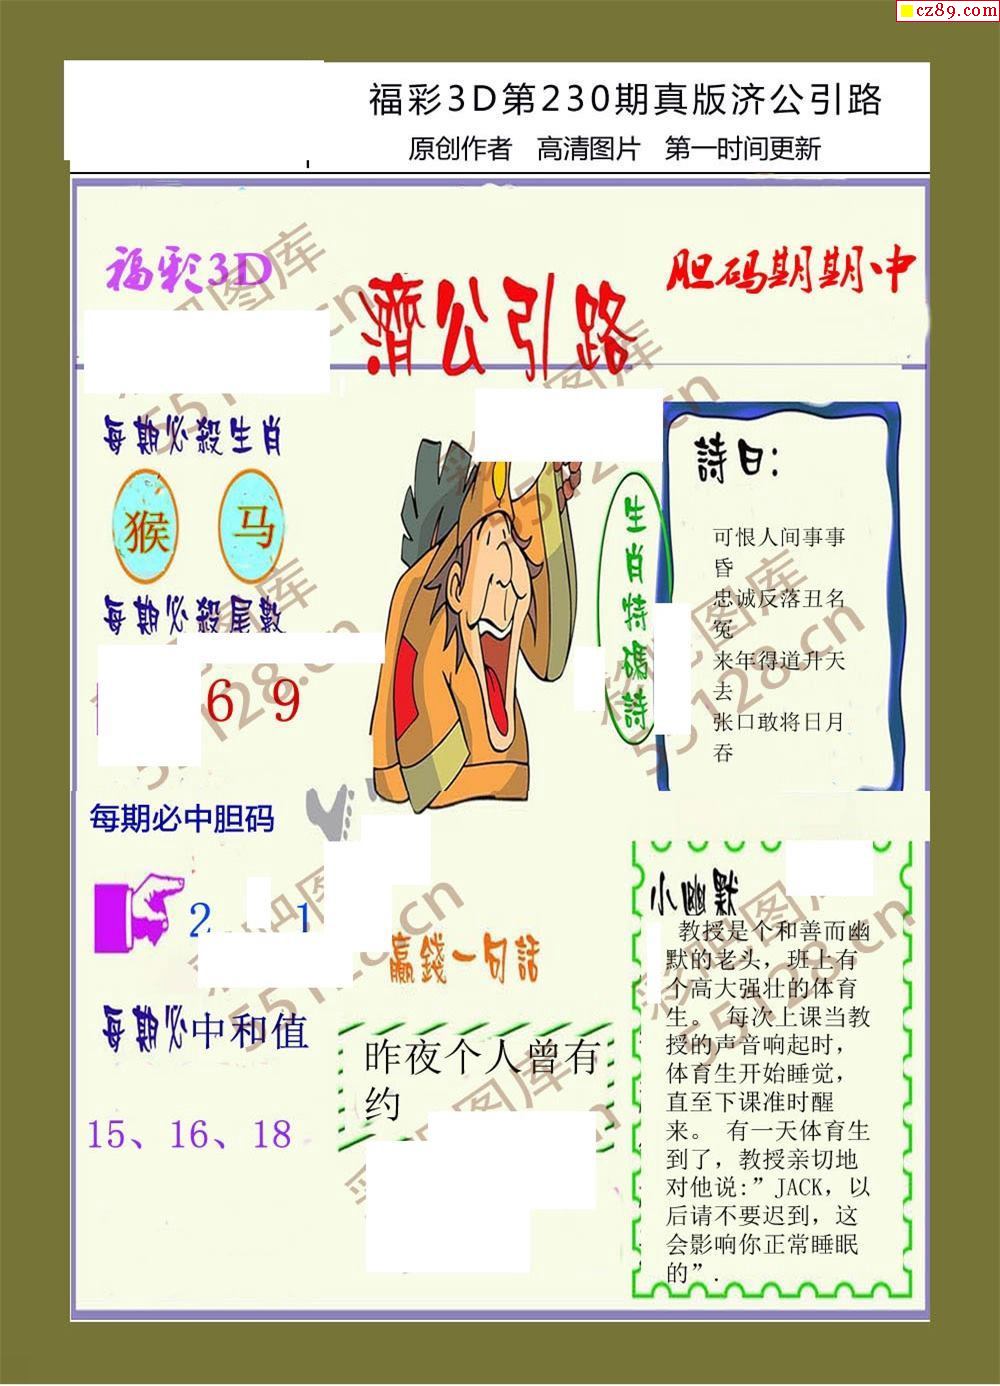 cz89.com
福彩3D第230期真版济公引路
原创作者 高清图片 第一时间更新
福彩3D
濟公引路
胆码期期中
每期必殺生肖
猴 马
每期必殺尾數
6 9
每期必中胆码
2 1
每期必中和值
15、16、18
生肖特碼詩
詩曰:
可恨人间事事
昏
忠诚反落丑名
冤
来年得道升天
去
张口敢将日月
吞
赢錢一句話
昨夜个人曾有
约
小幽默
教授是个和善而幽
默的老头，班上有
个高大强壮的体育
生。 每次上课当教
授的声音响起时，
体育生开始睡觉，
直至下课准时醒
来。 有一天体育生
到了，教授亲切地
对他说:”JACK，以
后请不要迟到，这
会影响你正常睡眠
的”.
彩吧图库
55128.cn